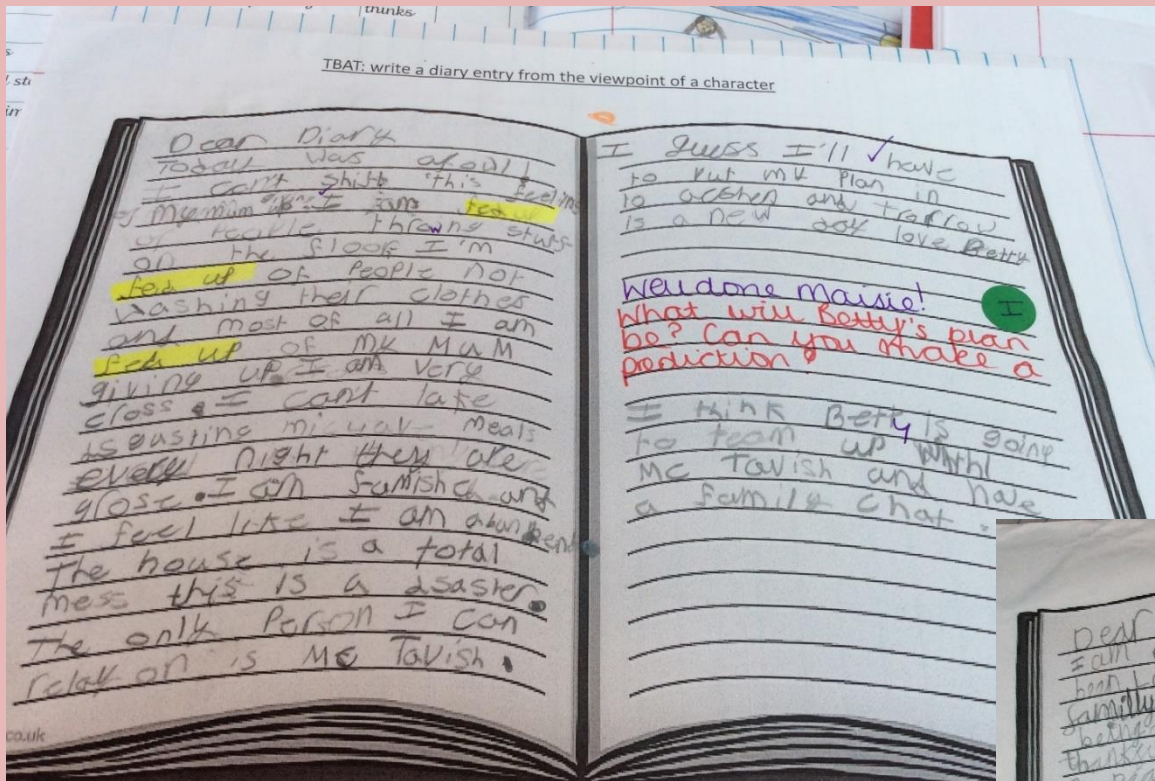 thinks
TBAT: write a diary entry from the viewpoint of a character
Dear Diary
Today was afoull
I can't shift this feeling
of my mum I am fed up
of people throwing stufs
on the floor I'm
fed up of people not
washing their clothes
and most of all I am
fed up of my Mum
giving up. I am very
cross. I can't take
isgusting micwav meals
every night they are
grose. I am famished and
I feel like I am abundent
The house is a total
mess this is a disaster.
The only person I can
relay on is Mc Tavish.
I guess I'll have
to put my plan in
to acshen and
is a new day love Betty
Well done Maisie!
I
What will Betty's plan
be? Can you make a
prediction?
I think Betty is going
to team up with
Mc Tavish and have
a family chat.
co.uk
Dear
I am
been
familly
being
thank